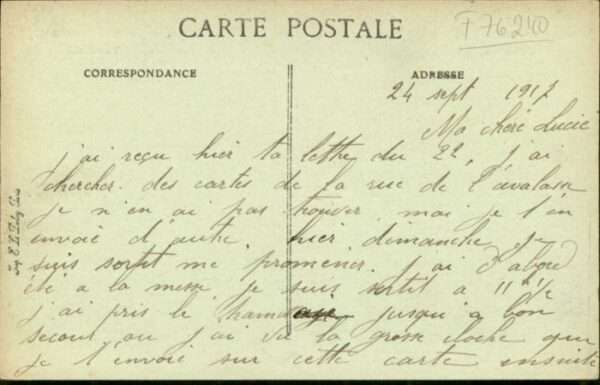 CARTE POSTALE
T 76240
CORRESPONDANCE
ADRESSE
24 sept 1917
Ma chère Lucie
j'ai reçu hier ta lettre du 22, j'ai
chercher des cartes de la rue de l'avalasse
je n'en ai pas trouver mai je t'en
envoie d'autre. hier dimanche je
suis sortit me promener. j'ai d'abord
été a la messe je suis sortit a 11 h 1/2
j'ai pris le jusqu'a bon
secour ou j'ai vu la grosse cloche que
je t'envoie sur cette carte ensuite